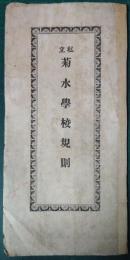 私立
菊水學校規則